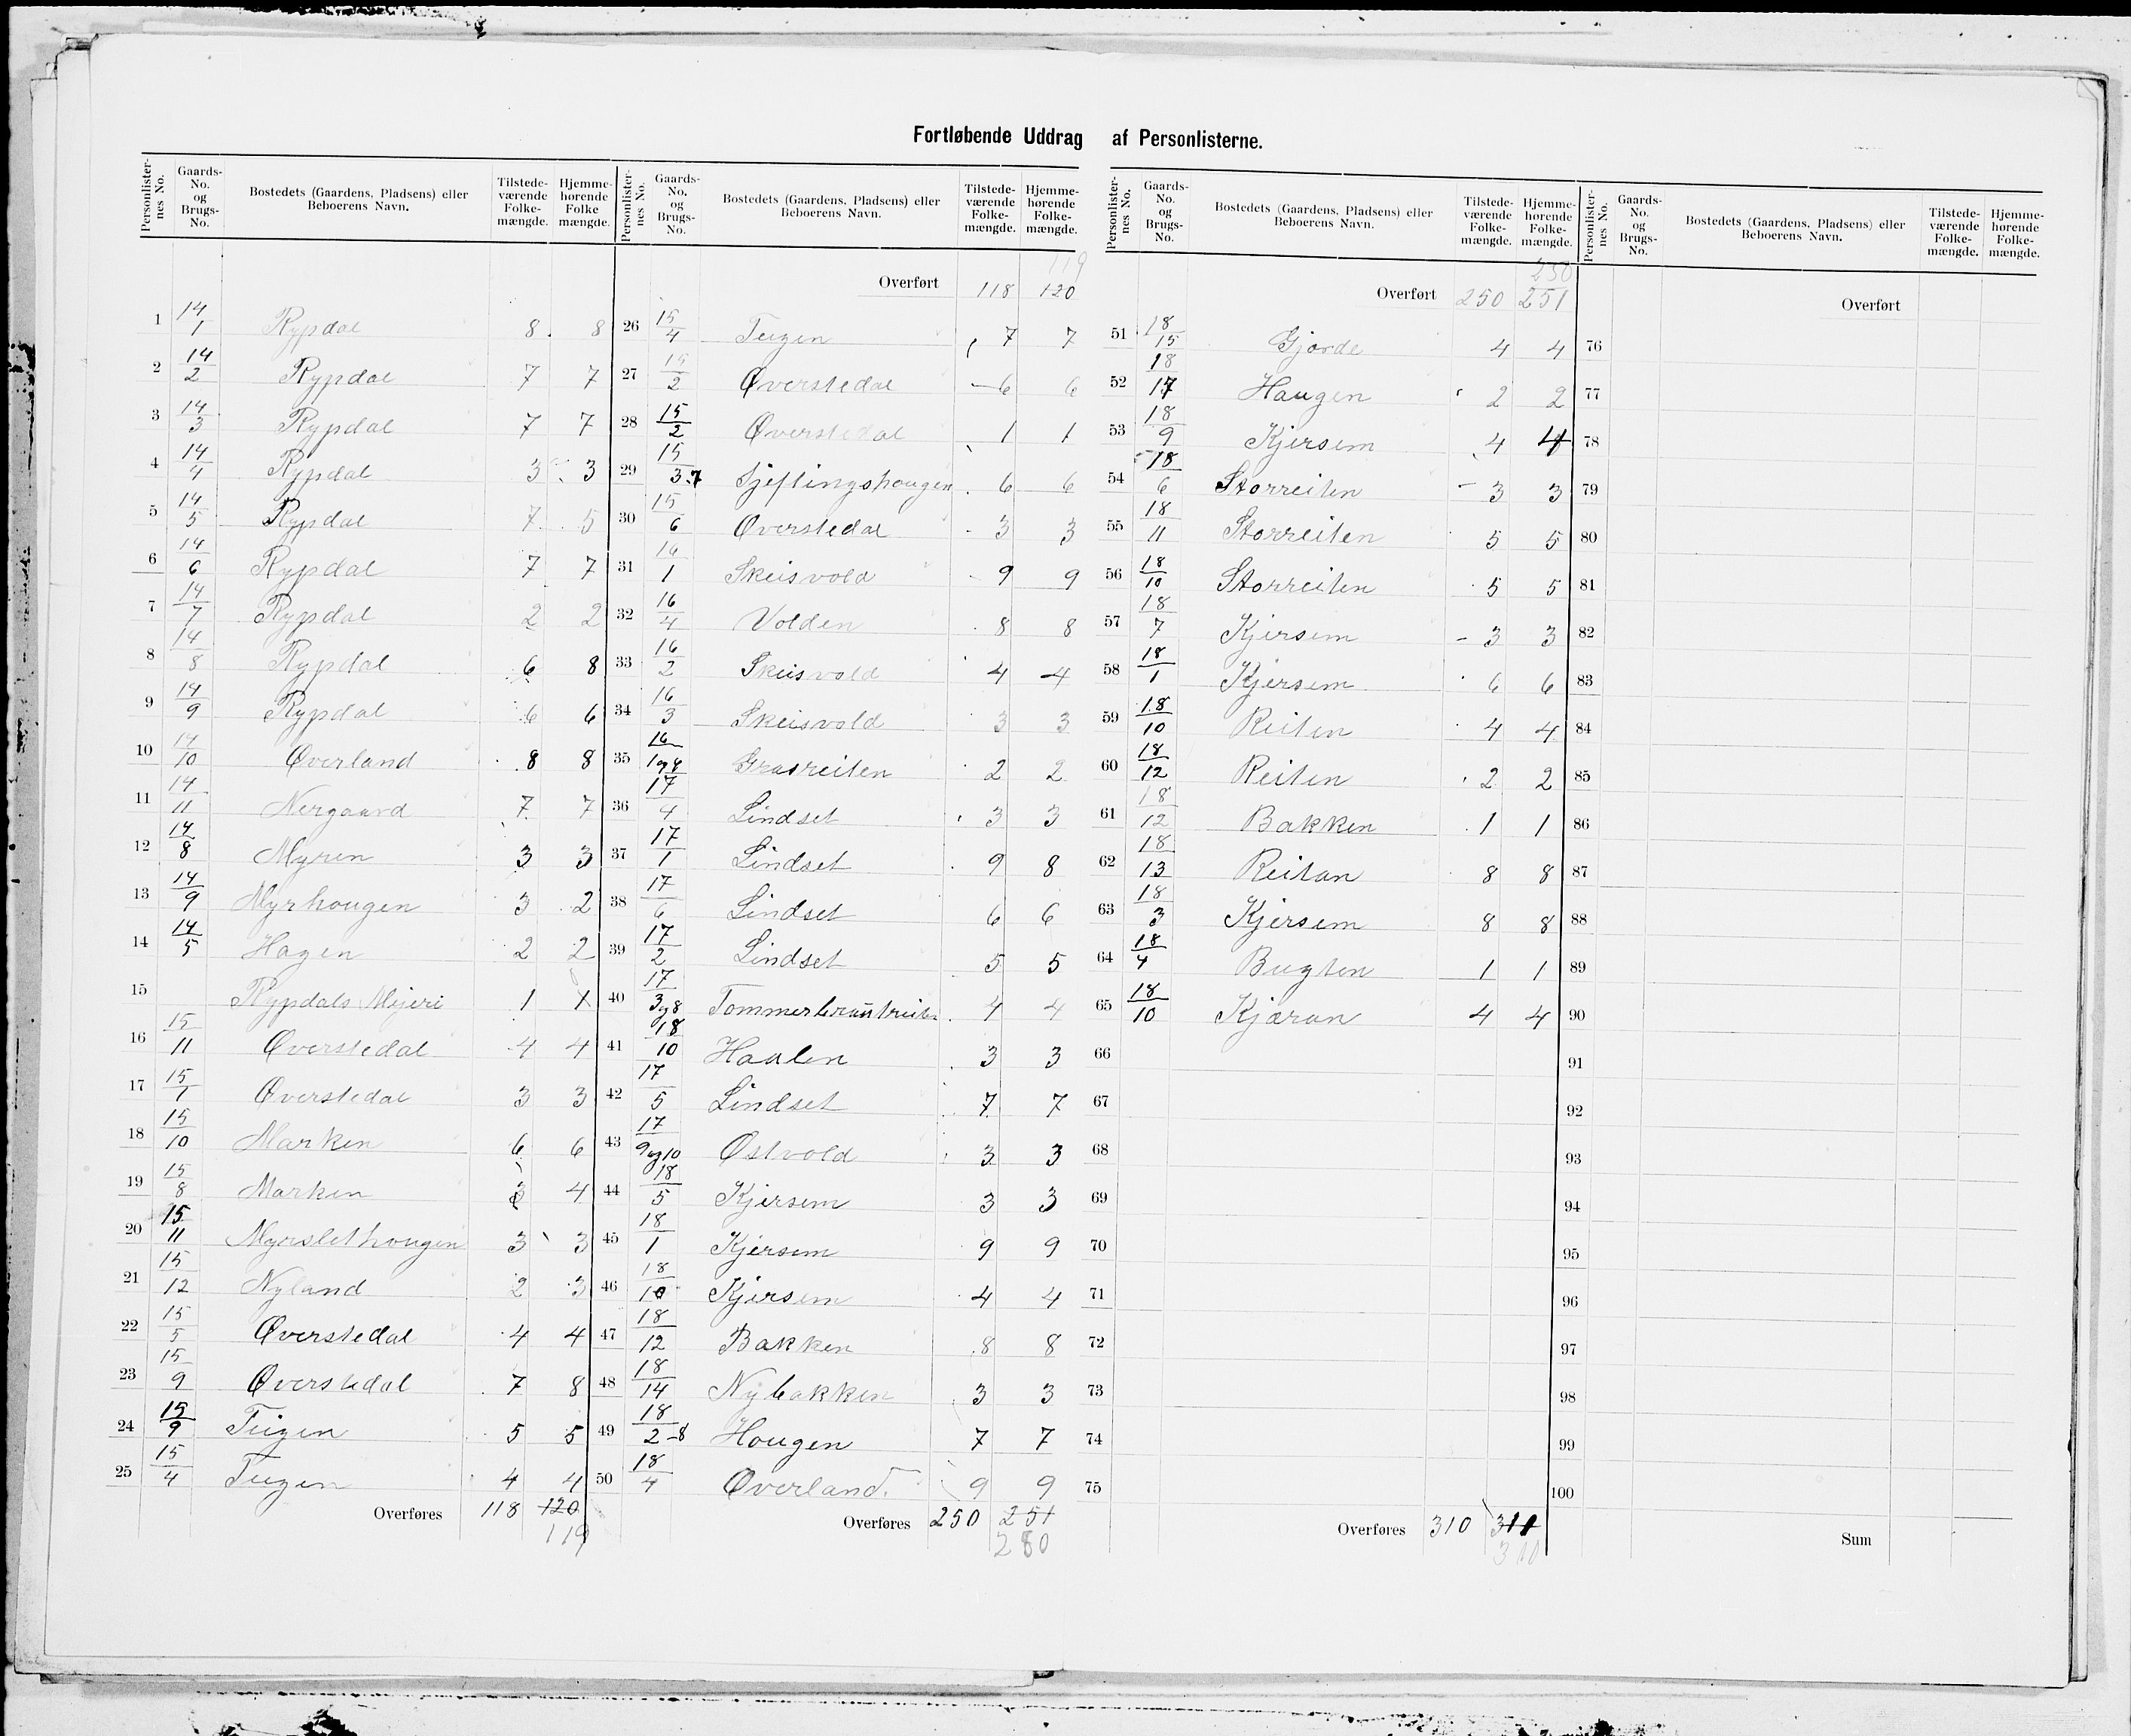 Fortløbende Uddrag af Personlisterne.
Personlisternes No. Gaards-No. og Brugs-No. Bostedets (Gaardens, Pladsens) eller Beboerens Navn. Tilstedeværende Folkemængde. Hjemmehørende Folkemængde.
1 14/1 Rypdal 8 8
2 14/2 Rypdal 7 7
3 14/3 Rypdal 7 7
4 14/4 Rypdal 3 3
5 14/5 Rypdal 7 5
6 14/6 Rypdal 7 7
7 14/7 Rypdal 2 2
8 14/8 Rypdal 6 8
9 14/9 Rypdal 6 6
10 14/10 Øverland 8 8
11 14/11 Nergaard 7 7
12 14/8 Myren 3 3
13 14/9 Myrhougen 3 2
14 14/5 Hagen 2 2
15 Rypdals Mejeri 1
16 15/11 Øverstedal 4 4
17 15/1 Øverstedal 3 3
18 15/10 Marken 6 6
19 15/8 Marken 4
20 15/11 Myerslethougen 3 3
21 15/12 Nyland 2 3
22 15/5 Øverstedal 4 4
23 15/9 Øverstedal 7 8
24 15/9 Teigen 5 5
25 15/4 Teigen 4 4
Overføres 118 120
119
Personlisternes No. Gaards-No. og Brugs-No. Bostedets (Gaardens, Pladsens) eller Beboerens Navn. Tilstedeværende Folkemængde. Hjemmehørende Folkemængde.
119
Overført 118 120
26 15/4 Teigen 7 7
27 15/2 Øverstedal 6 6
28 15/2 Øverstedal 1 1
29 15/3.7 6 6
30 15/6 Øverstedal 3 3
31 16/1 Skeisvold 9 9
32 16/4 Volden 8 8
33 16/2 Skeisvold 4 4
34 16/3 Skeisvold 3 3
35 16/1og4 Grasreiten 2 2
36 17/4 Lindset 3 3
37 17/1 Lindset 9 8
38 17/6 Lindset 6 6
39 17/2 Lindset 5 5
40 17/3og8 4 4
41 18/10 Haalen 3 3
42 17/5 Lindset 7 7
43 17/9og10 Østvold 3 3
44 18/5 Kjersem 3 3
45 18/1 Kjersem 9 9
46 18/10 Kjersem 4 4
47 18/12 Bakken 8 8
48 18/14 Nybakken 3 3
49 18/2-8 Hougen 7 7
50 18/4 Øverland. 9 9
Overføres 250 251
250
Personlisternes No. Gaards-No. og Brugs-No. Bostedets (Gaardens, Pladsens) eller Beboerens Navn. Tilstedeværende Folkemængde. Hjemmehørende Folkemængde.
250
Overført 250 251
51 18/15 Gjorde 4 4
52 18/17 Haugen 2 2
53 18/9 Kjersem 4 4
54 18/6 Storreiten 3 3
55 18/11 Storreiten 5 5
56 18/10 Storreiten 5 5
57 18/7 Kjersem 3 3
58 18/1 Kjersem 6 6
59 18/10 Reiten 4 4
60 18/12 Reiten 2 2
61 18/12 Bakken 1 1
62 18/13 Reitan 8 8
63 18/3 Kjersem 8 8
64 18/4 Bugten 1 1
65 18/10 Kjæran 4 4
66
67
68
69
70
71
72
73
74
75
Overføres 310 311
310
Personlisternes No. Gaards-No. og Brugs-No. Bostedets (Gaardens, Pladsens) eller Beboerens Navn. Tilstedeværende Folkemængde. Hjemmehørende Folkemængde.
Overført
76
77
78
79
80
81
82
83
84
85
86
87
88
89
90
91
92
93
94
95
96
97
98
99
100
Sum